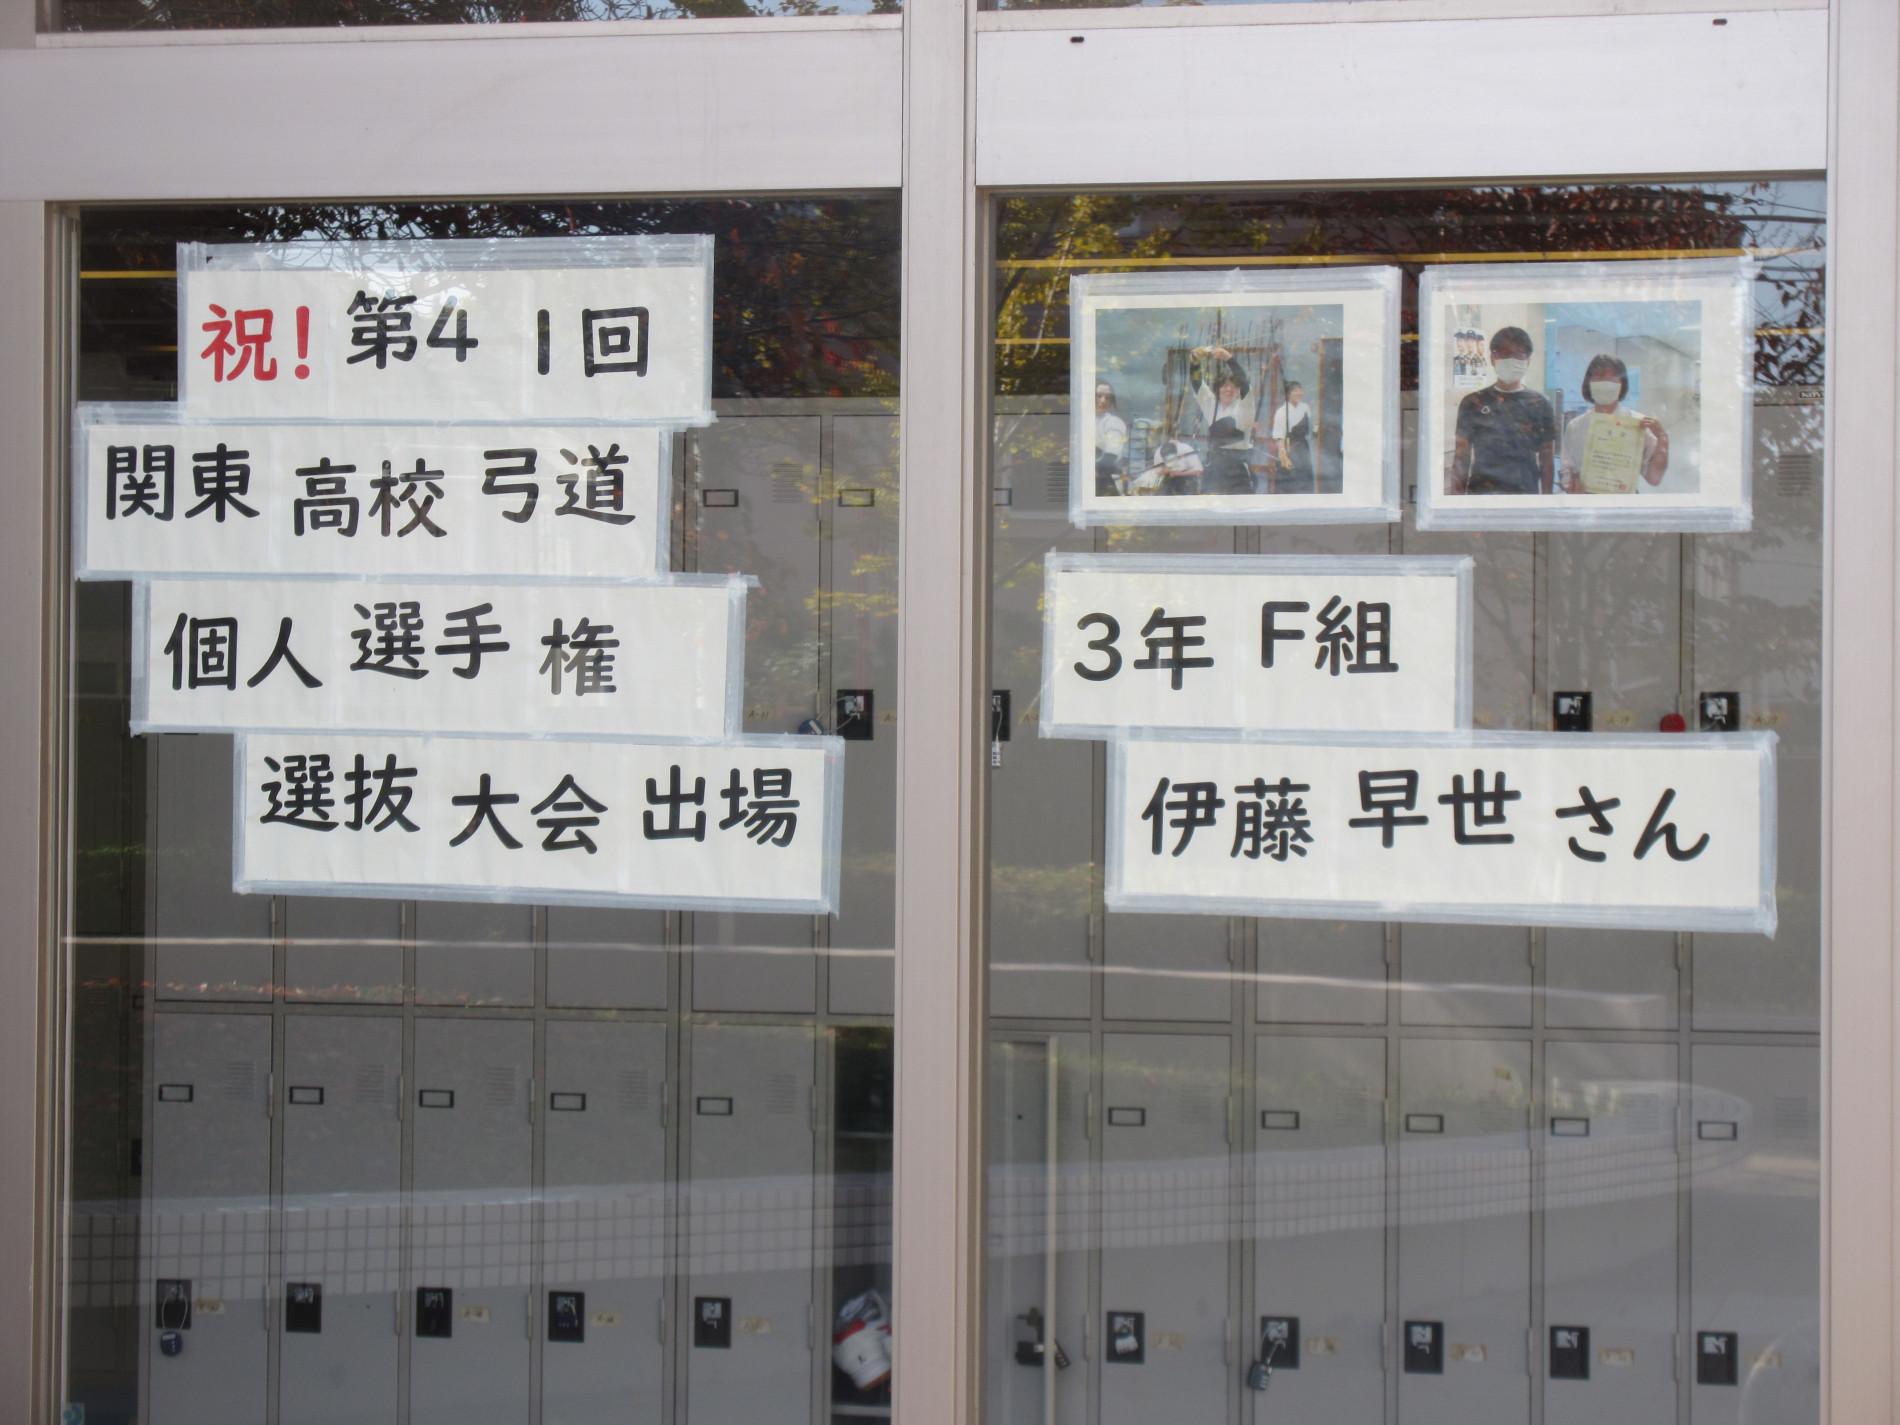 祝!第41回
関東高校弓道
個人選手権
選抜大会出場
3年F組
伊藤早世さん